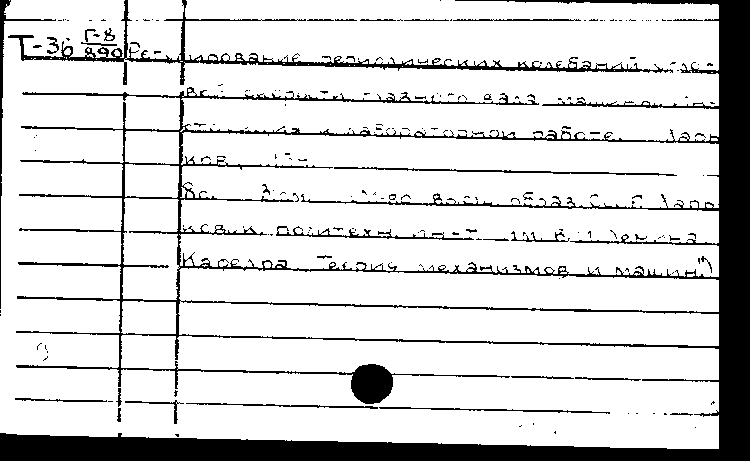 Т-36 Г-8/890 Ре- ...ирование периодических колебаний угло-
вой скорости главного вала машины. Ин-
струкция к лабораторной работе. Харь
ков,
8с. высш. образ. Харь
ковск. политехн. ин-т им. В. И. Ленина
Кафедра "Теория механизмов и машин")